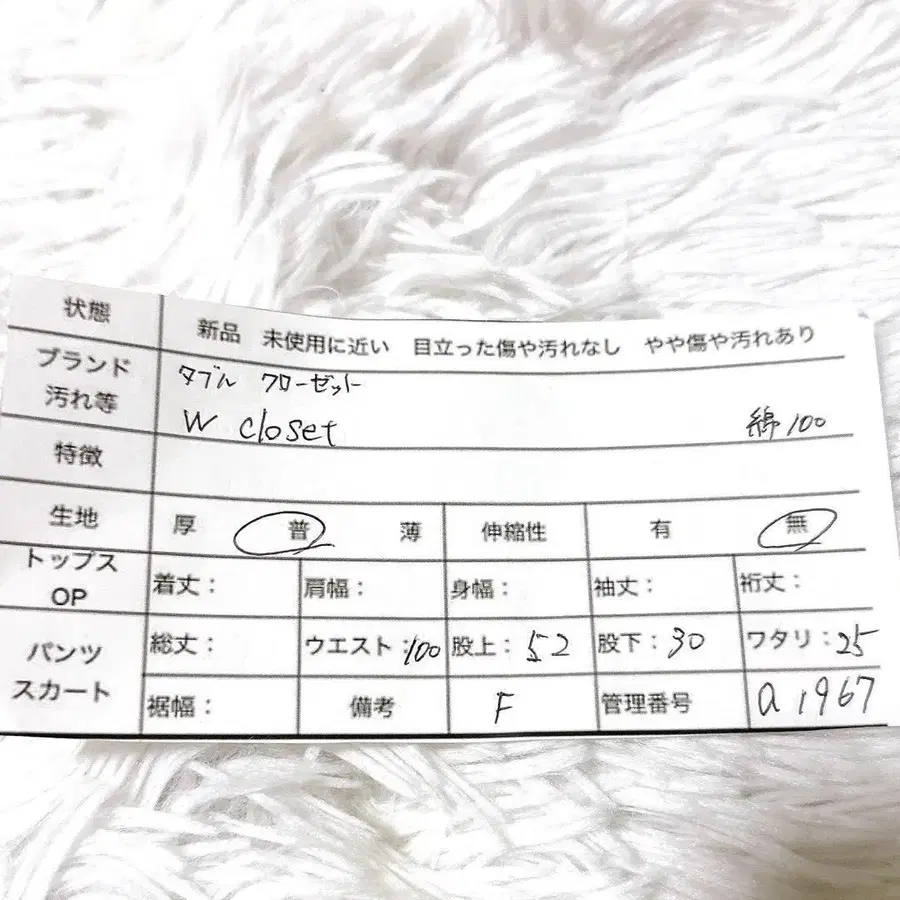 状態 新品 未使用に近い 目立った傷や汚れなし やや傷や汚れあり
ブランド ダブル クローゼット
汚れ等 W closet 綿100
特徴
生地 厚 普 薄 伸縮性 有 無
トップス OP 着丈： 肩幅： 身幅： 袖丈： 裄丈：
パンツ 総丈： ウエスト：100 股上：52 股下：30 ワタリ：25
スカート 裾幅： 備考 F 管理番号 a1967